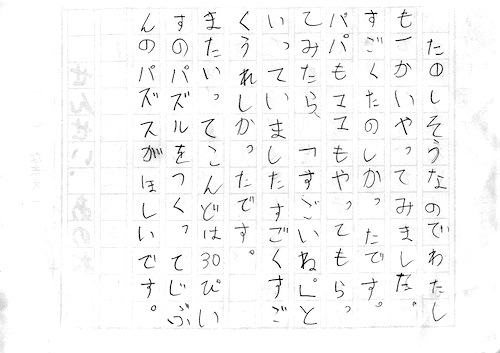 たのしそうなのでわたし
も一かいやってみました。
すごくたのしかったです。
パパもママもやってもらっ
てみたら、「すごいね」と
いっていましたすごくすご
くうれしかったです。
またいってこんどは30ぴい
すのパズルをつくってじぶ
んのパズスがほしいです。